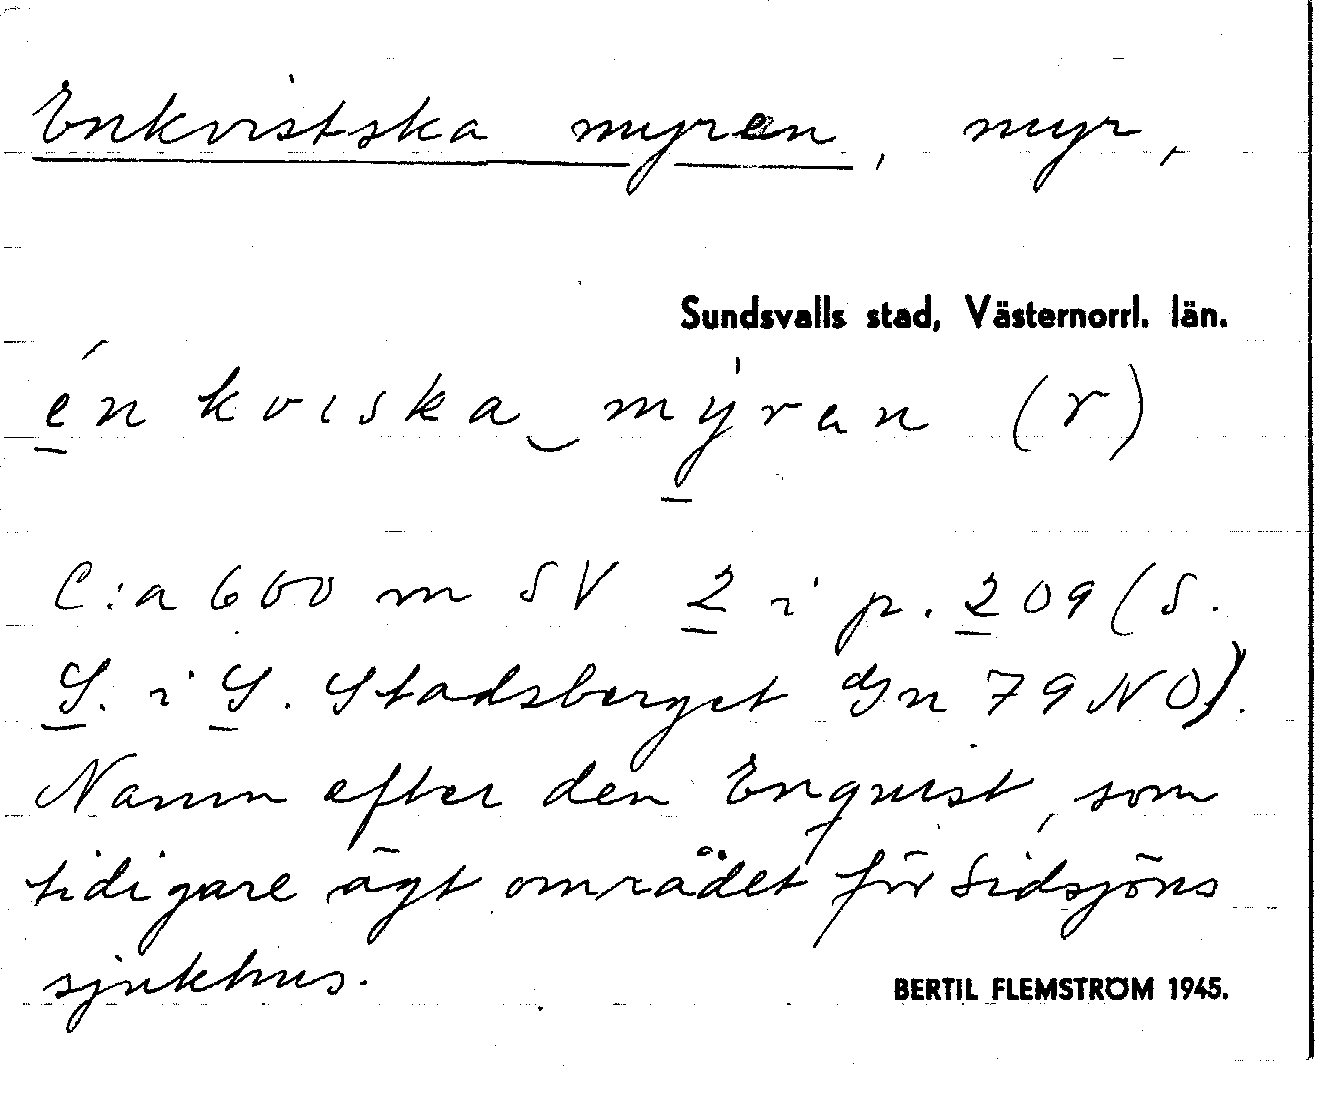 Enkvistska myren, myr,
Sundsvalls stad, Västernorrl. län.
énkviska‿mýran (r)
C:a 600 m SV 2 i p. 209 (S.
S. i S. Stadsberget Gn 79 NO).
Namn efter den Enquist, som
tidigare ägt området för Sidsjöns
sjukhus.
BERTIL FLEMSTRÖM 1945.